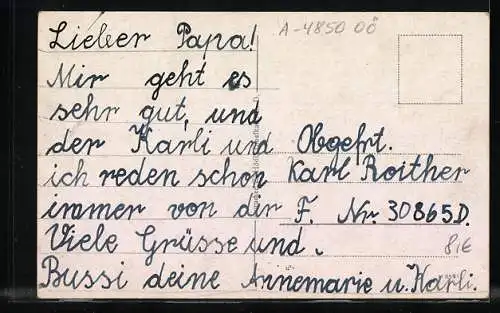 Lieber Papa!
A-4850 OÖ
Mir geht es
sehr gut, und
der Karli und
ich reden schon
immer von dir
Viele Grüsse und
Bussi deine Annemarie u. Karli.
Obgefrt.
Karl Roither
F. Nr. 30865D.
8,€